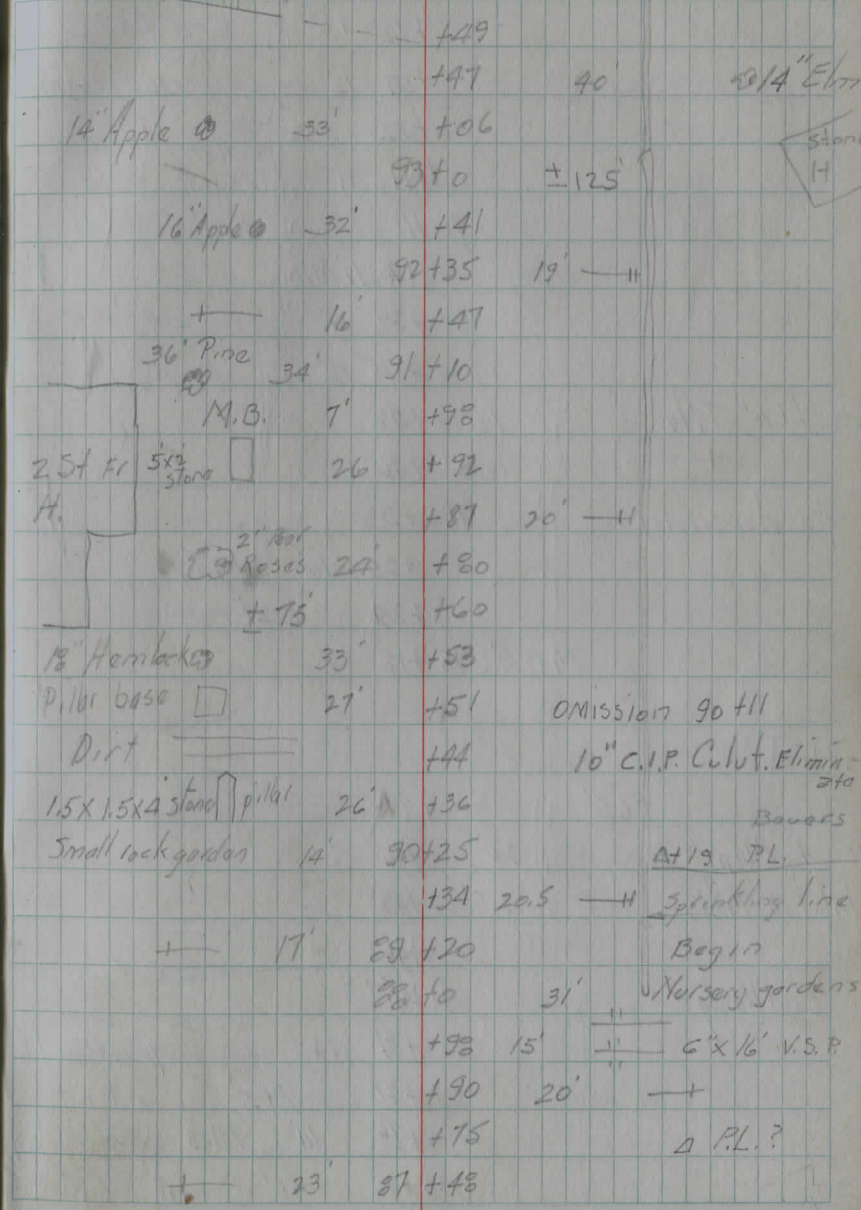 +49
+47 40' 14" Elm
14" Apple 33' +06
Stone
93+0 ±125' H
16" Apple 32' +41
92+35 19'
16' +47
36" Pine
34' 91+10
M.B. 7' +98
2 St Fr 5'x2' stone 26 +92
H.
+87 20'
2'
Roses 24' +80
±75' +60
18" Hemlock 33' +53
Pillar base 27' +51 OMission 90+11
Dirt +44 10" C.I.P. Culut. Elimin-
ate
1.5 x 1.5 x 4' stone pillar 26' +36
Bauers
Small rock garden 14' 90+25 Δ+19 P.L.
+34 20.5 Sprinkling line
17' 89+20 Begin
88+0 31' Nursery gardens
+98 15' 6" x 16' V.S.P.
+90 20'
+75 Δ P.L.?
23' 87+48